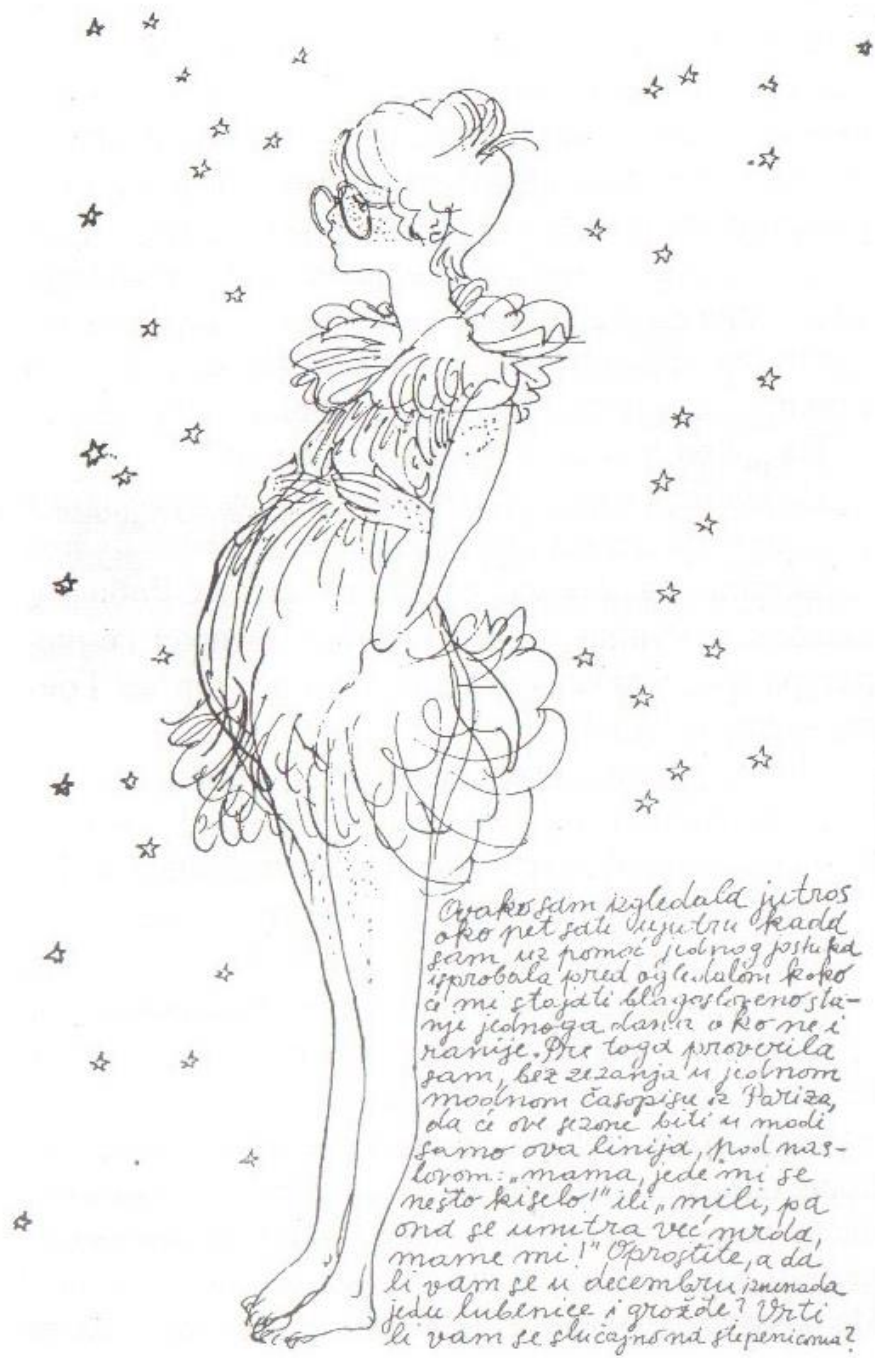 Ovako sam izgledala jutros
oko pet sati ujutru kada
sam, uz pomoć jednog jastuka
isprobala pred ogledalom kako
će mi stajati blagosloveno sta-
nje jednoga dana ako ne i
ranije. Pre toga proverila
sam, bez zezanja u jednom
modnom časopisu iz Pariza,
da će ove sezone biti u modi
samo ova linija, pod nas-
lovom: „mama, jede mi se
nešto kiselo!" ili „mili, pa
ona se unutra već mrda,
mame mi!" Oprostite, a da
li vam se u decembru iznenada
jedu lubenice i grožđe? Vrti
li vam se slučajno na stepenicama?